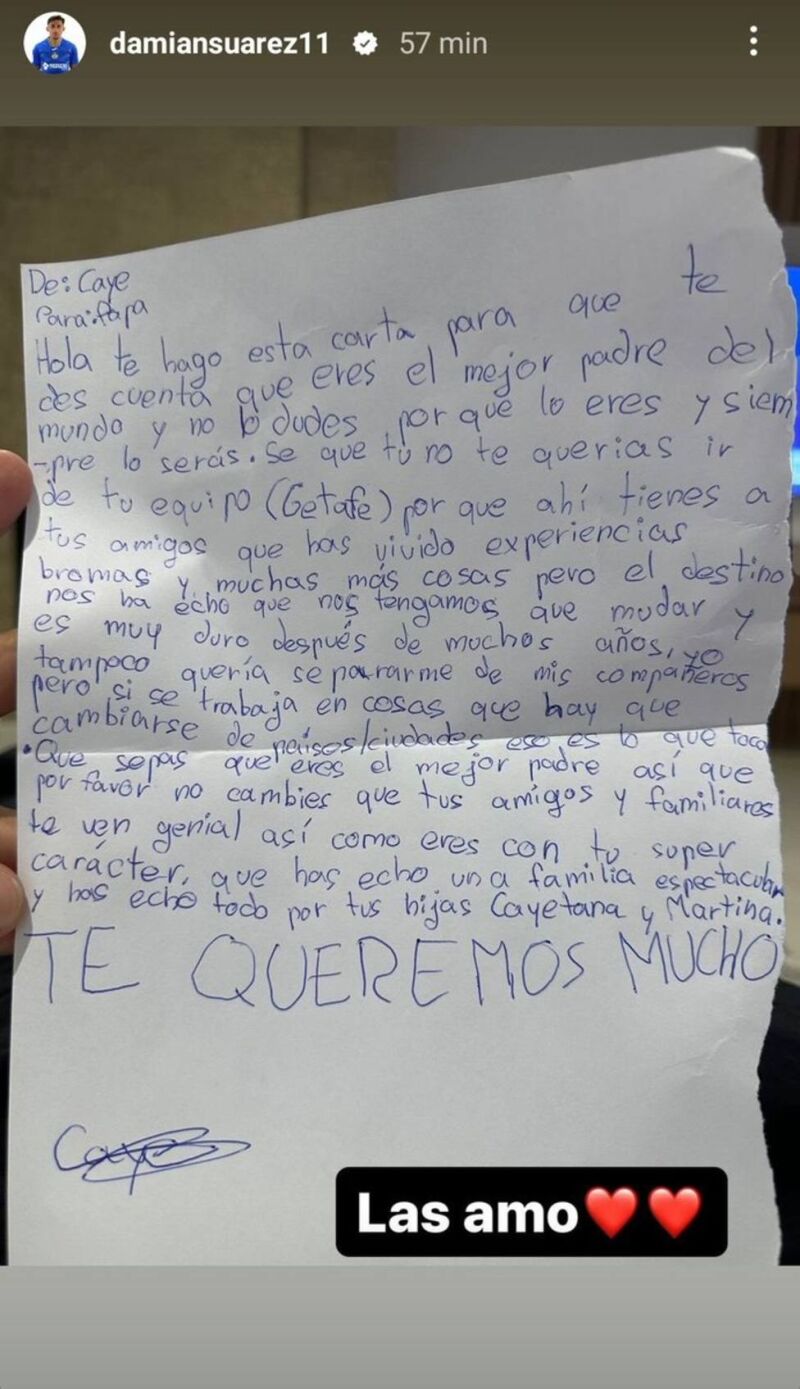 damiansuarez11 57 min
De: Caye
Para: Papa
Hola te hago esta carta para que te
des cuenta que eres el mejor padre del
mundo y no lo dudes porque lo eres y siem
-pre lo serás. Se que tú no te querias ir
de tu equipo (Getafe) por que ahí tienes a
tus amigos que has vivido experiencias
bromas y muchas más cosas pero el destino
nos ha echo que nos tengamos que mudar y
es muy duro después de muchos años, yo
tampoco quería separarme de mis compañeros
pero si se trabaja en cosas que hay que
cambiarse de paises/ciudades eso es lo que toca
• Que sepas que eres el mejor padre así que
por favor no cambies que tus amigos y familiares
te ven genial así como eres con tu super
carácter, que has echo una familia espectacular
y has echo todo por tus hijas Cayetana y Martina.
TE QUEREMOS MUCHO
Caye
Las amo❤️❤️